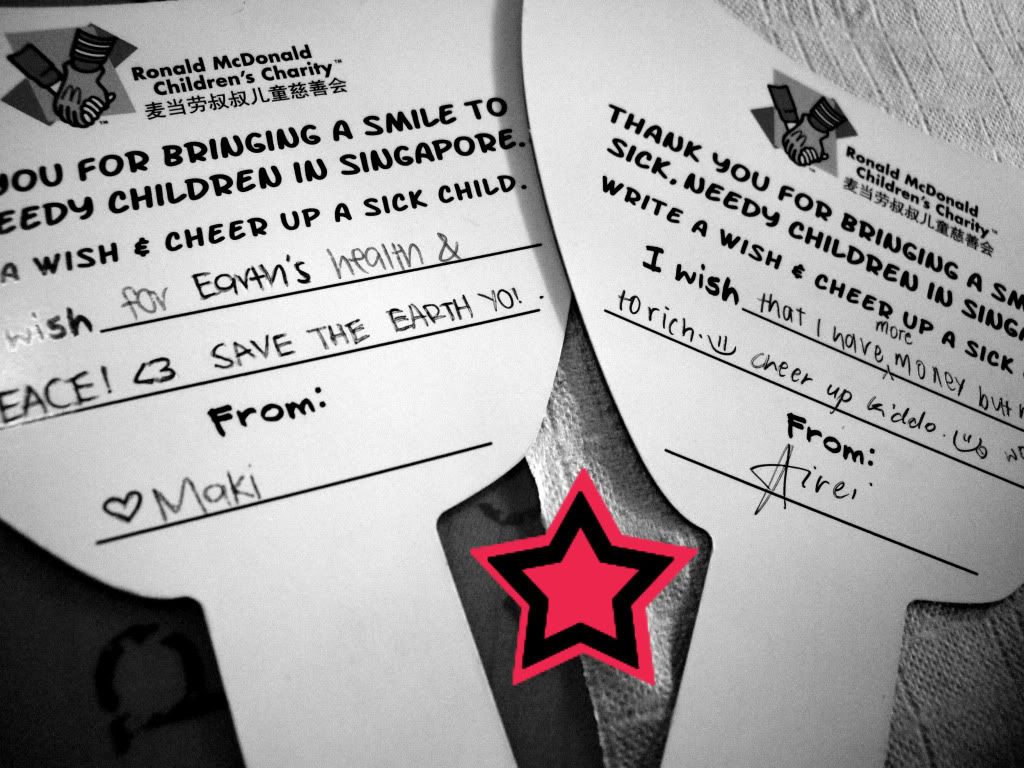 Ronald McDonald
Children's Charity™
麦当劳叔叔儿童慈善会
YOU FOR BRINGING A SMILE TO
EEDY CHILDREN IN SINGAPORE.
A WISH & CHEER UP A SICK CHILD.
wish for Earth's health &
EACE! <3 SAVE THE EARTH YO!.
From:
♡ Maki
Ronald McDonald
Children's Charity™
麦当劳叔叔儿童慈善会
THANK YOU FOR BRINGING A SM
SICK, NEEDY CHILDREN IN SINGA
WRITE A WISH & CHEER UP A SICK
I wish that I have more money but n
to rich. :) cheer up kiddo. :)
From:
Airei